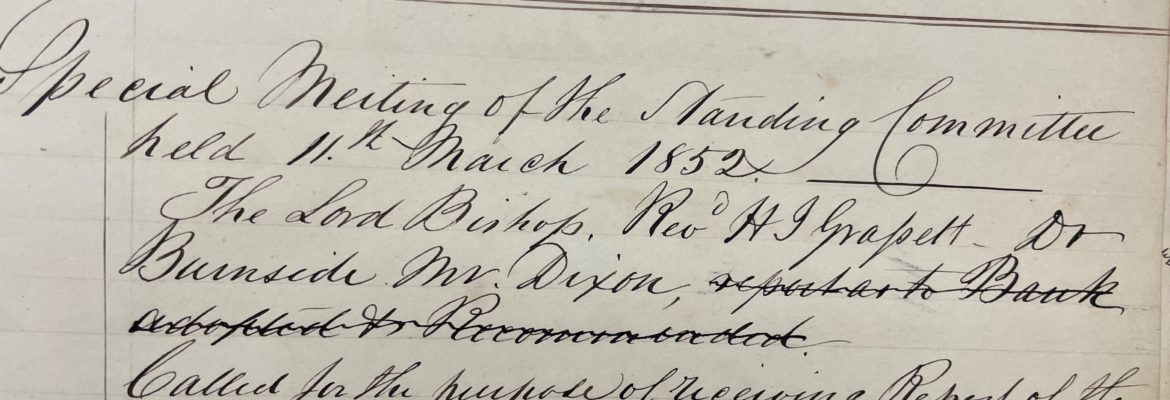 Special Meeting of the Standing Committee
held 11.th March 1852.
The Lord Bishop, Revd H J Grasett - Dr
Burnside Mr. Dixon, report as to Bank
adopted & Recommended.
Called for the purpose of receiving Report of the